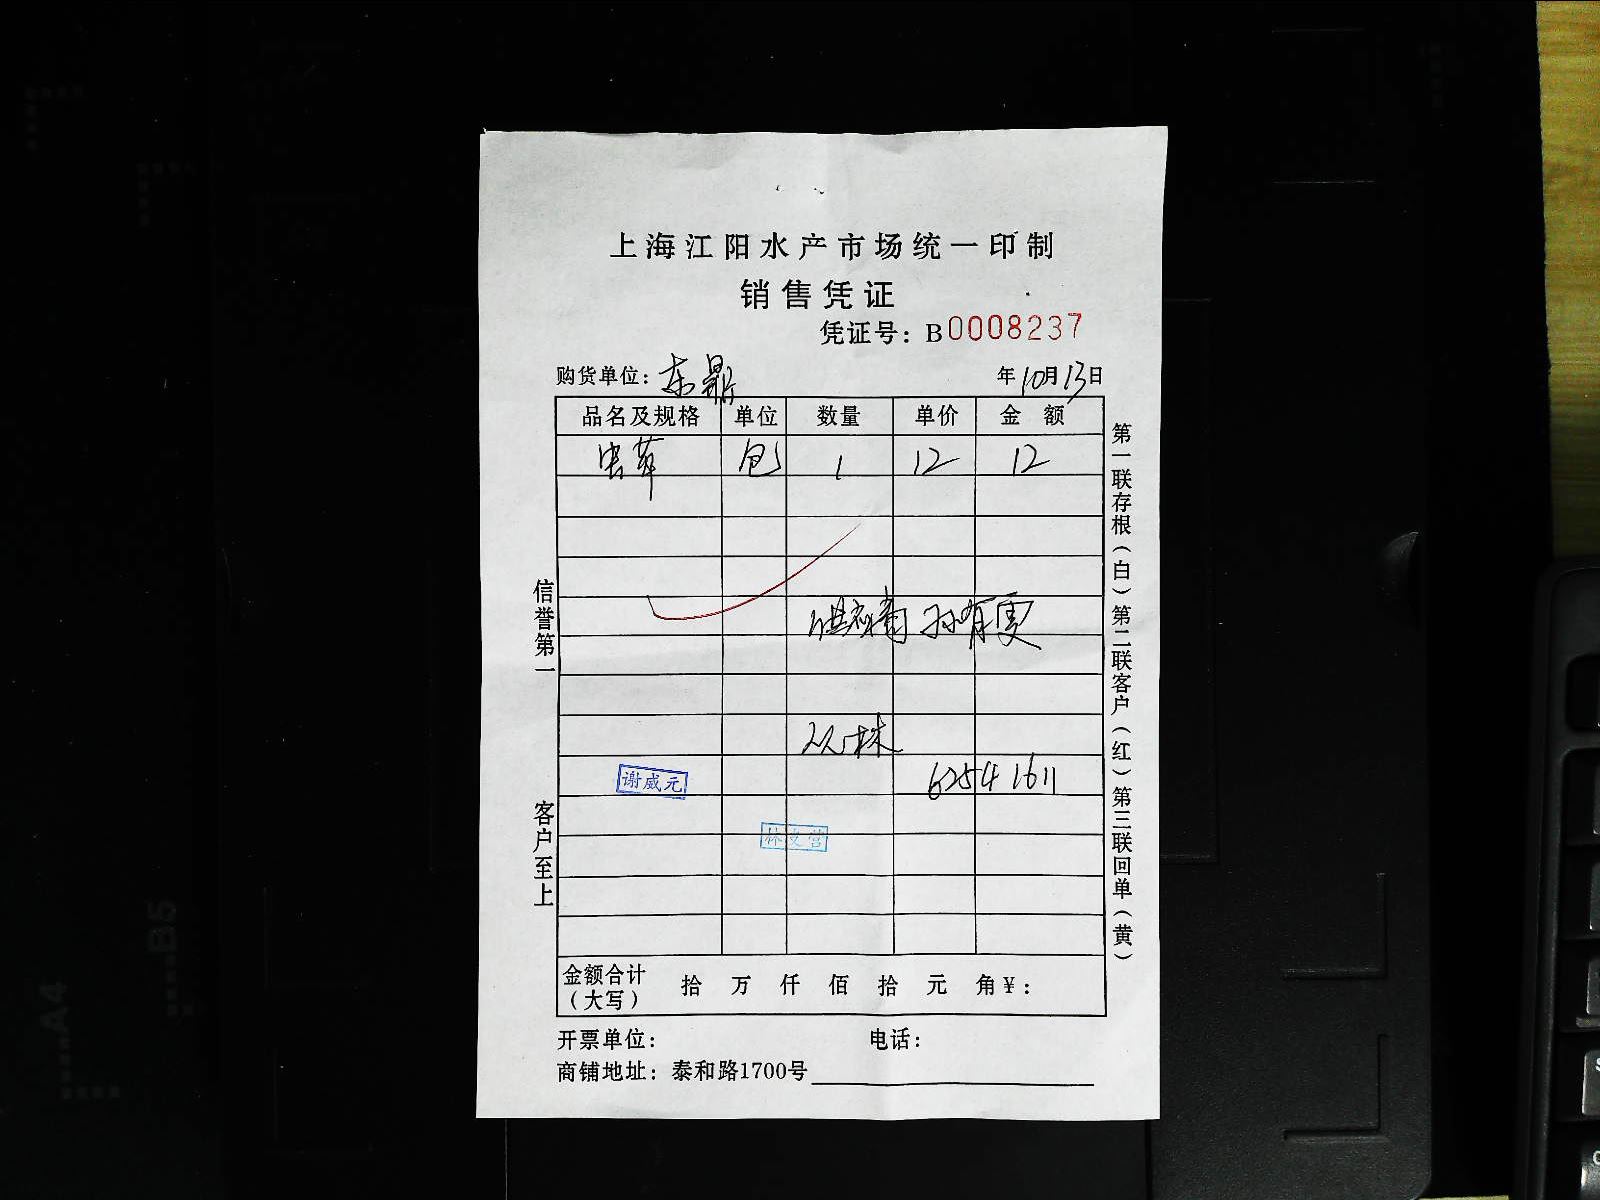 上海江阳水产市场统一印制
销售凭证
凭证号：B0008237
购货单位：东鼎 年10月13日
品名及规格 单位 数量 单价 金额
虫草 包 1 12 12
孙有雯
6254 1611
谢威元
林文营
金额合计（大写） 拾 万 仟 佰 拾 元 角¥：
开票单位： 电话：
商铺地址：泰和路1700号
信誉第一 客户至上
第一联存根（白）第二联客户（红）第三联回单（黄）
B5
A4